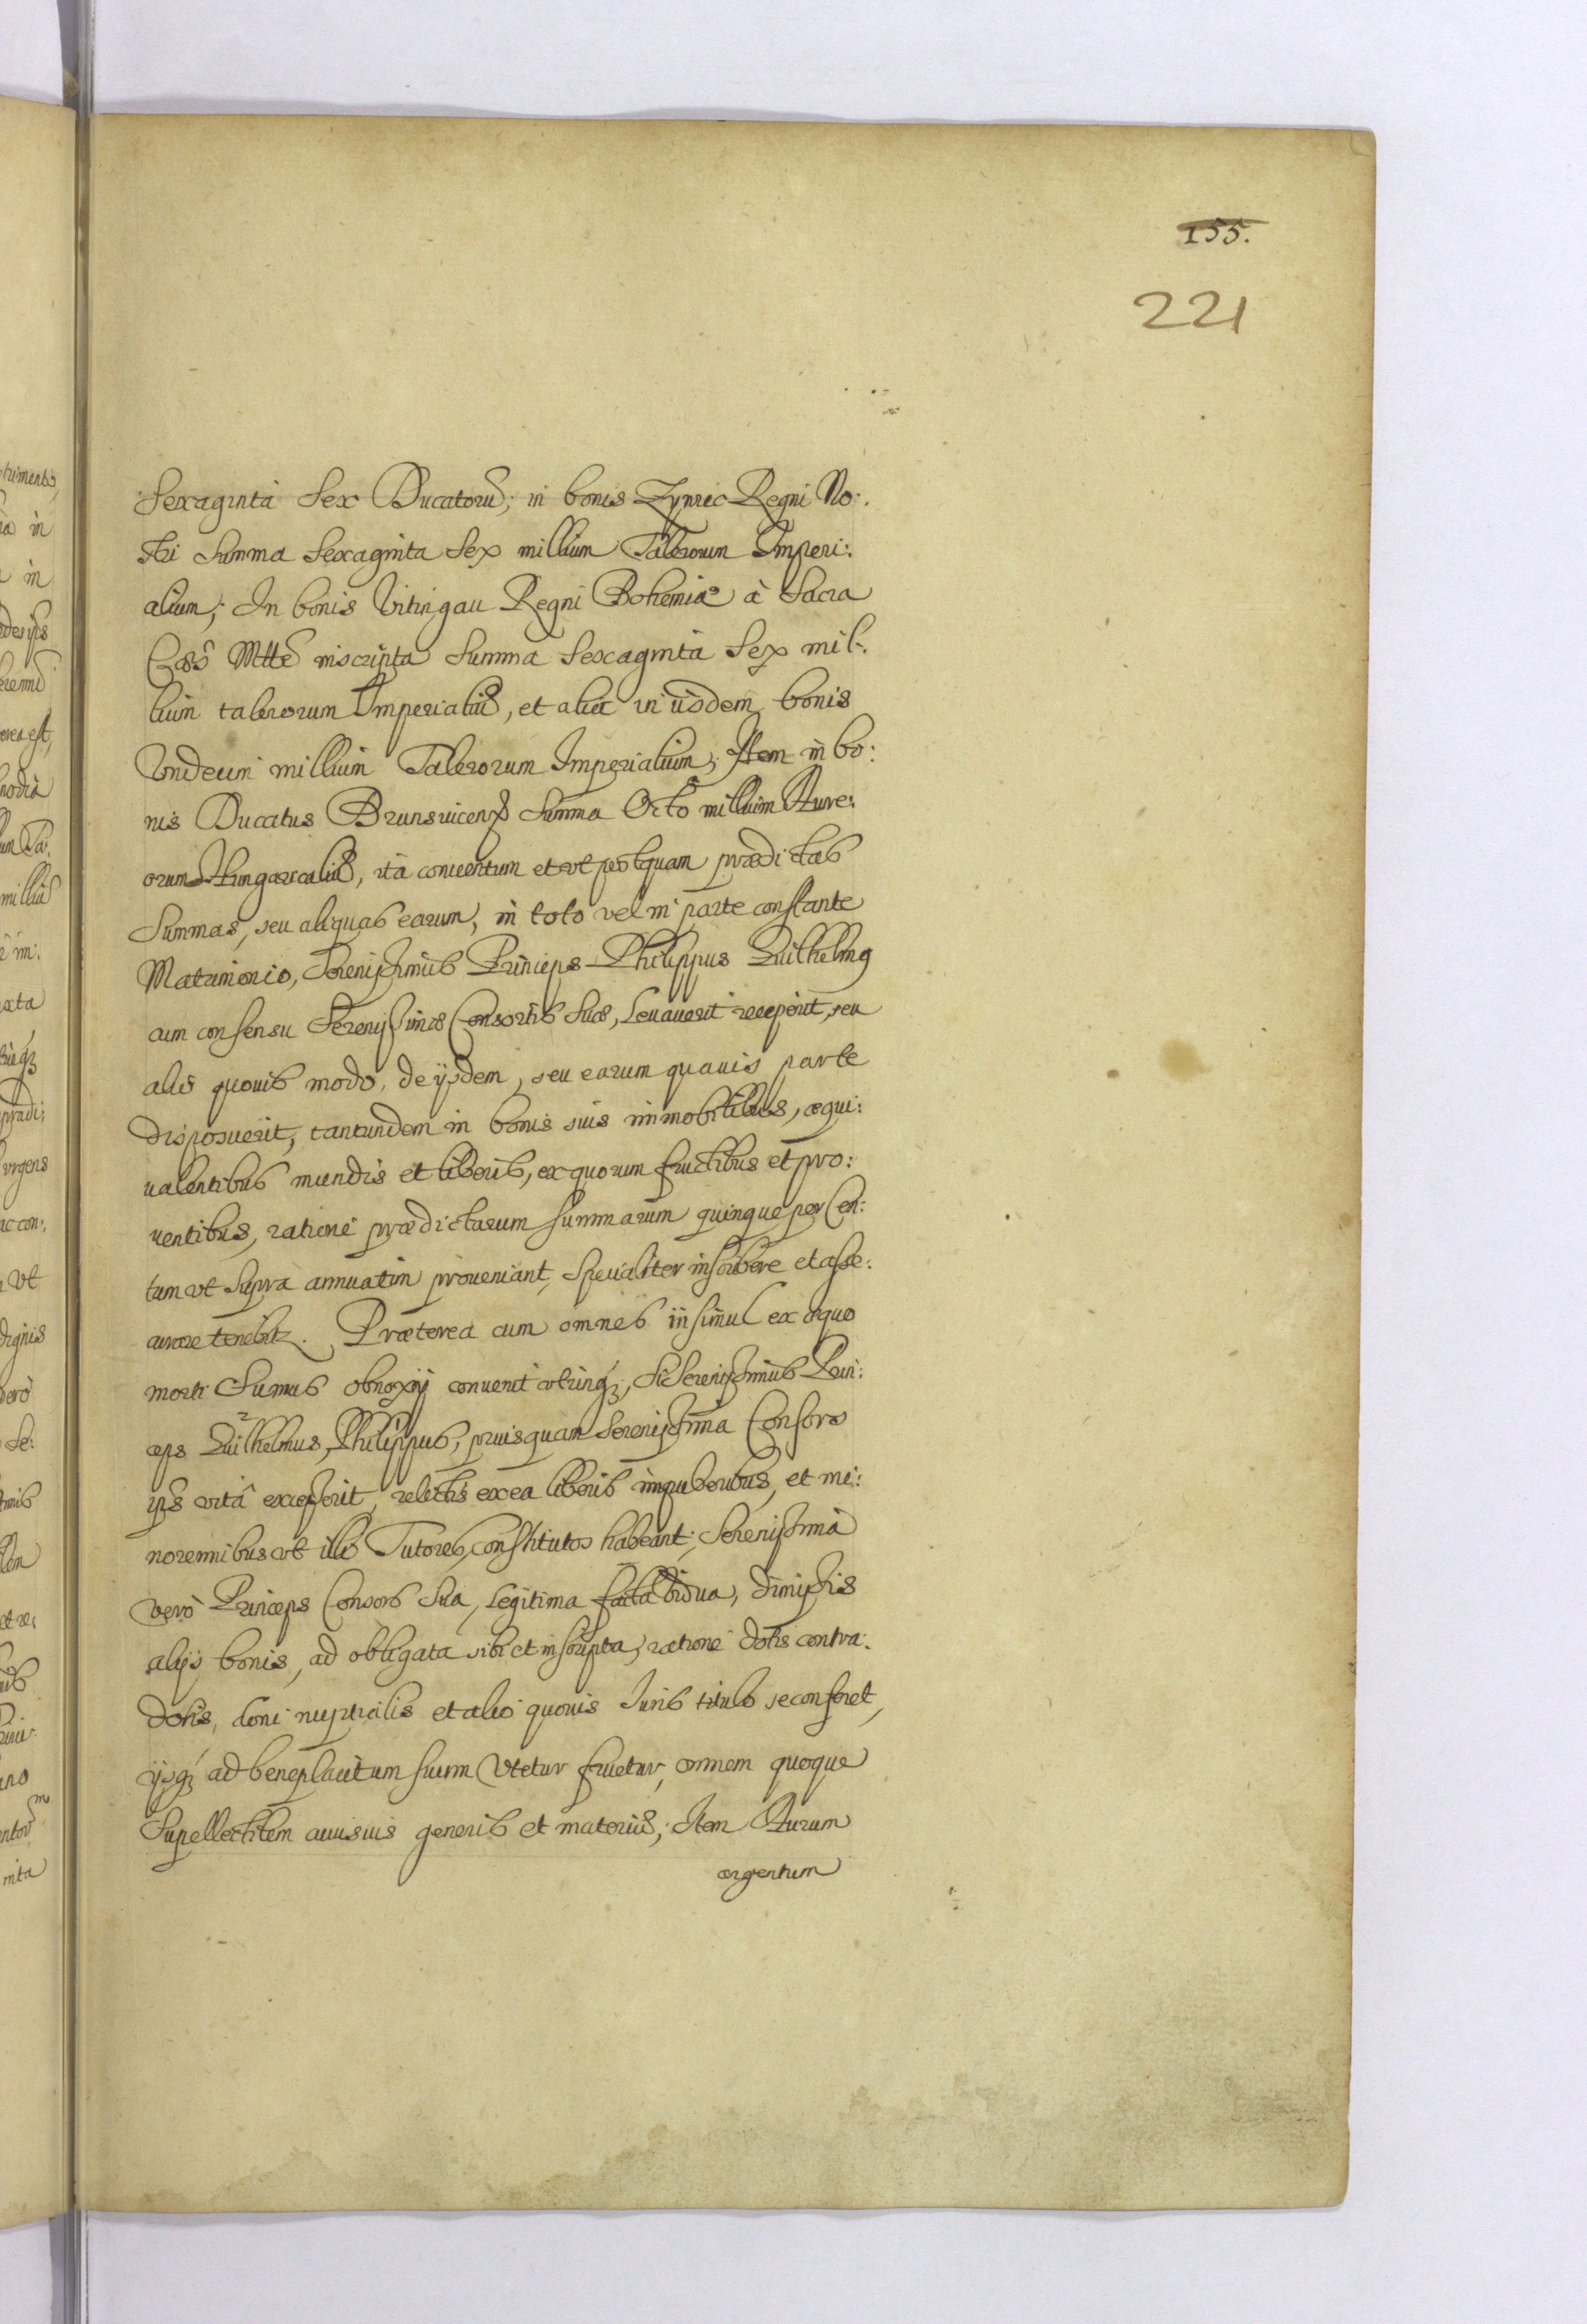 155.
221
Sexaginta Sex Ducatorũ; in bonis Zyviec Regni No:
stri Summa Sexaginta Sex millium Talerorum Imperi:
alium; In bonis Vitingau Regni Bohemiæ à Sacra
Cæs Mtte inscripta Summa Sexaginta Sex mil:
lium talerorum Imperialiũ, et alia in iisdem bonis
Vndecim millium Talerorum Imperialium; Item in bo:
nis Ducatus Brunsuicens Summa Octo millium Aure:
orum Hungaricaliũ, ita conuentum et vt postquam prædictas
Summas, seu aliquas earum, in toto vel in parte constante
Matrimonio, Serenissimus Princeps Philippus Vilhelmus
cum consensu Serenissimæ Consortis Suæ, Leuauerit receperit, seu
alis quouis modo, de ijsdem, seu earum quauis parte
disposuerit, tantundem in bonis suis immobilibus, æqui:
ualentibus mundis et liberis, ex quorum fructibus et pro:
uentibus, ratione prædictarum summarum quinque per Cen:
tum vt Supra annuatim proueniant, Specialiter inscribere et asse:
curare tenebitur. Præterea cum omnes insimul ex æquo
morti Sumus obnoxij conuenit vtrinq3, Si Serenissimus Prin:
ceps Vilhelmus, Philippus, priusquam Serenissima Consors
ips vitâ excesserit, relictis ex ea liberis impuberibus, et mi:
norennibus vt illi Tutores, constitutos habeant; Serenissima
verò Princeps Consors Sua, Legitima facta Vidua, dimissis
alijs bonis, ad obligata sibi et inscripta, ratione dotis contra:
dotis, doni nuptialis et alio quouis Juris titulo se conferet,
ijsq3 ad beneplacitum suum Vtetur fruetur, omnem quoque
Supellectilem cuiusuis generis et materiæ; Item Aurum
argentum